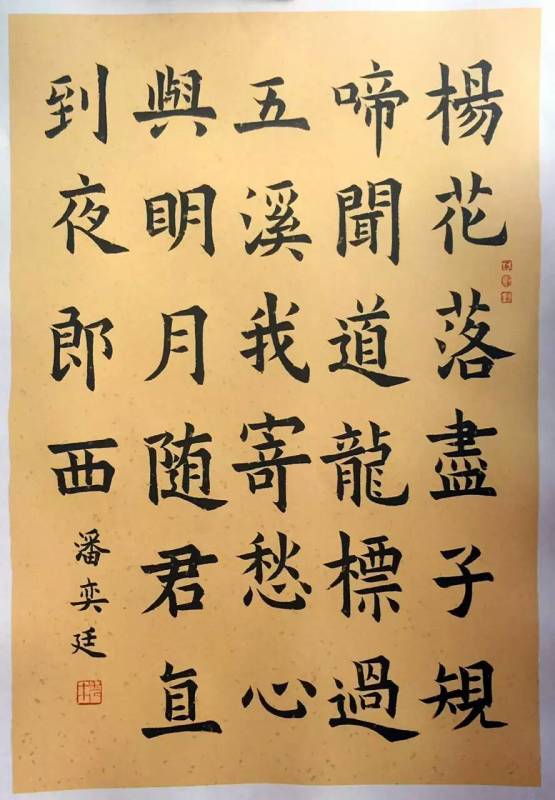 楊花落盡子規
啼聞道龍標過
五溪我寄愁心
與明月随君直
到夜郎西
潘奕廷